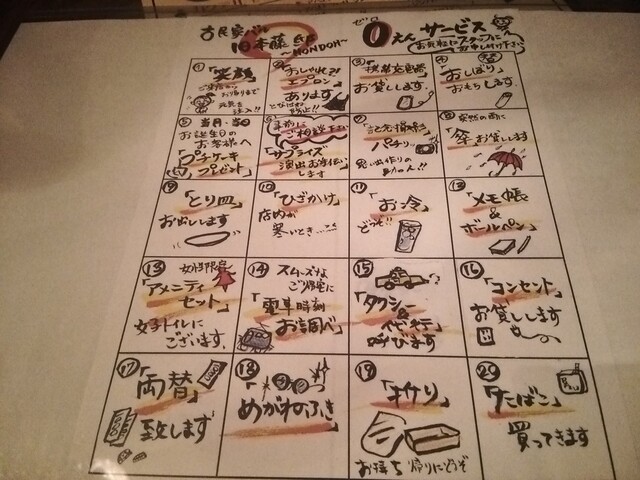 古民家バル
本藤邸
〜HONDOH〜
ゼロ
0えんサービス
お気軽にスタッフに
お申し付け下さい
①
「笑顔」
元気を
注入!!
②
「おしゃれ?!
エプロン」
あります
③
「携帯充電器」
お貸しします
④
「おしぼり」
おもちします。
⑤ 当月・当日
お誕生日の
お客様へ
「プチケーキ
プレゼント」
⑥ 事前に
ご相談下さい
「サプライズ」
演出お手伝い
します
⑦
「記念撮影」
パチリ
思い出作りの
お助けん!!
⑧ 突然の雨に
「傘」お貸しします
⑨
「とり皿」
お出しします
⑩
「ひざかけ」
店内が
寒いとき
⑪
「お冷」
どうぞ!!
⑫
「メモ帳
&
ボールペン」
⑬ 女性限定
「アメニティ
セット」
女子トイレに
ございます。
⑭ スムーズな
ご帰宅に
「電車時刻
お調べ」
⑮
「タクシー
&
代行」
呼びます
⑯
「コンセント」
お貸しします
⑰
「両替」
致します
⑱
「めがねふき」
⑲
「オリ」
お持ち帰りにどうぞ
⑳
「たばこ」
買ってきます